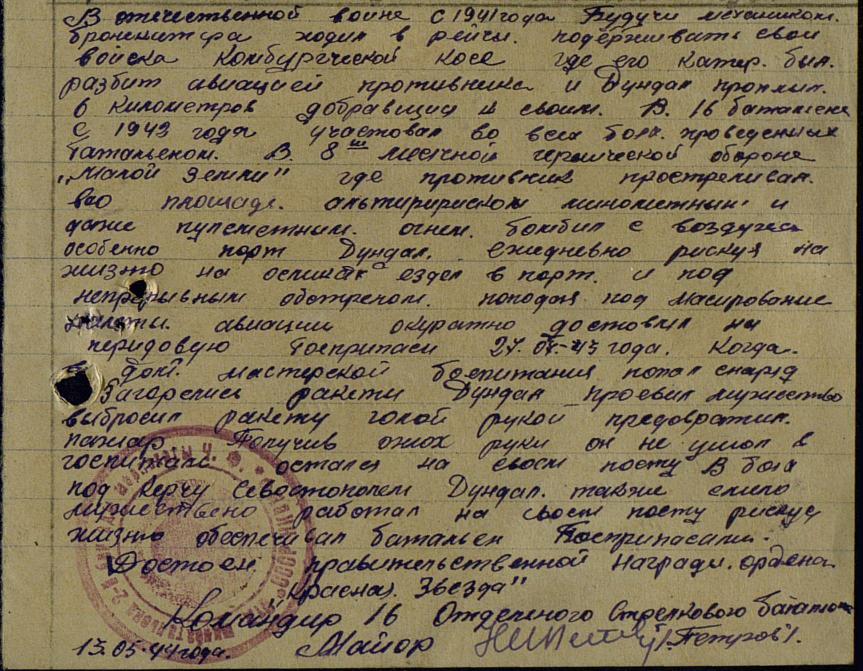 В отечественной войне с 1941 года Будучи механиком.
бронекатера ходил в рейсы. подерживать свои
войска Комбургической косе где его катер. был.
разбит авиацией противника и Дундал проплил.
6 километров добравщися к своим. В. 16 батальене
с 1943 года участовал во всех боях. проведенных
батальеном. В. 8ми месячной героической обороне
„Малой Земли" где противник прострелива л.
всю площадь. алтирирском минометным и
даже пулеметным. огнем. бомбил с воздуха
особенно порт Дундал. ежедневно рискуя на
жизню на осликах ездел в порт. и под
непрерывным обстрелом. поподая под масирование
налеты. авиации окуратно доставил на
передовую Боеприпаси 27.07-43 года. Когда.
в мастерской боепитания попал снаряд
Загорелись ракети Дундал проевил мужество
выбросил ракету голой рукой предовратил.
пажар Получив ожох руки он не ушол в
госпиталь остался на своем посту В боях
под Керчу Севостополем Дундал. также смело
мужествено работал на своем посту рискуя
жизню обеспечивал батальен Боеприпасами.
Достоен. правительственной награди. ордена
„красная. Звезда"
Командир 16 Отделеного Стрелкового баталиона
13.05.44 года. Майор /.Петров/.